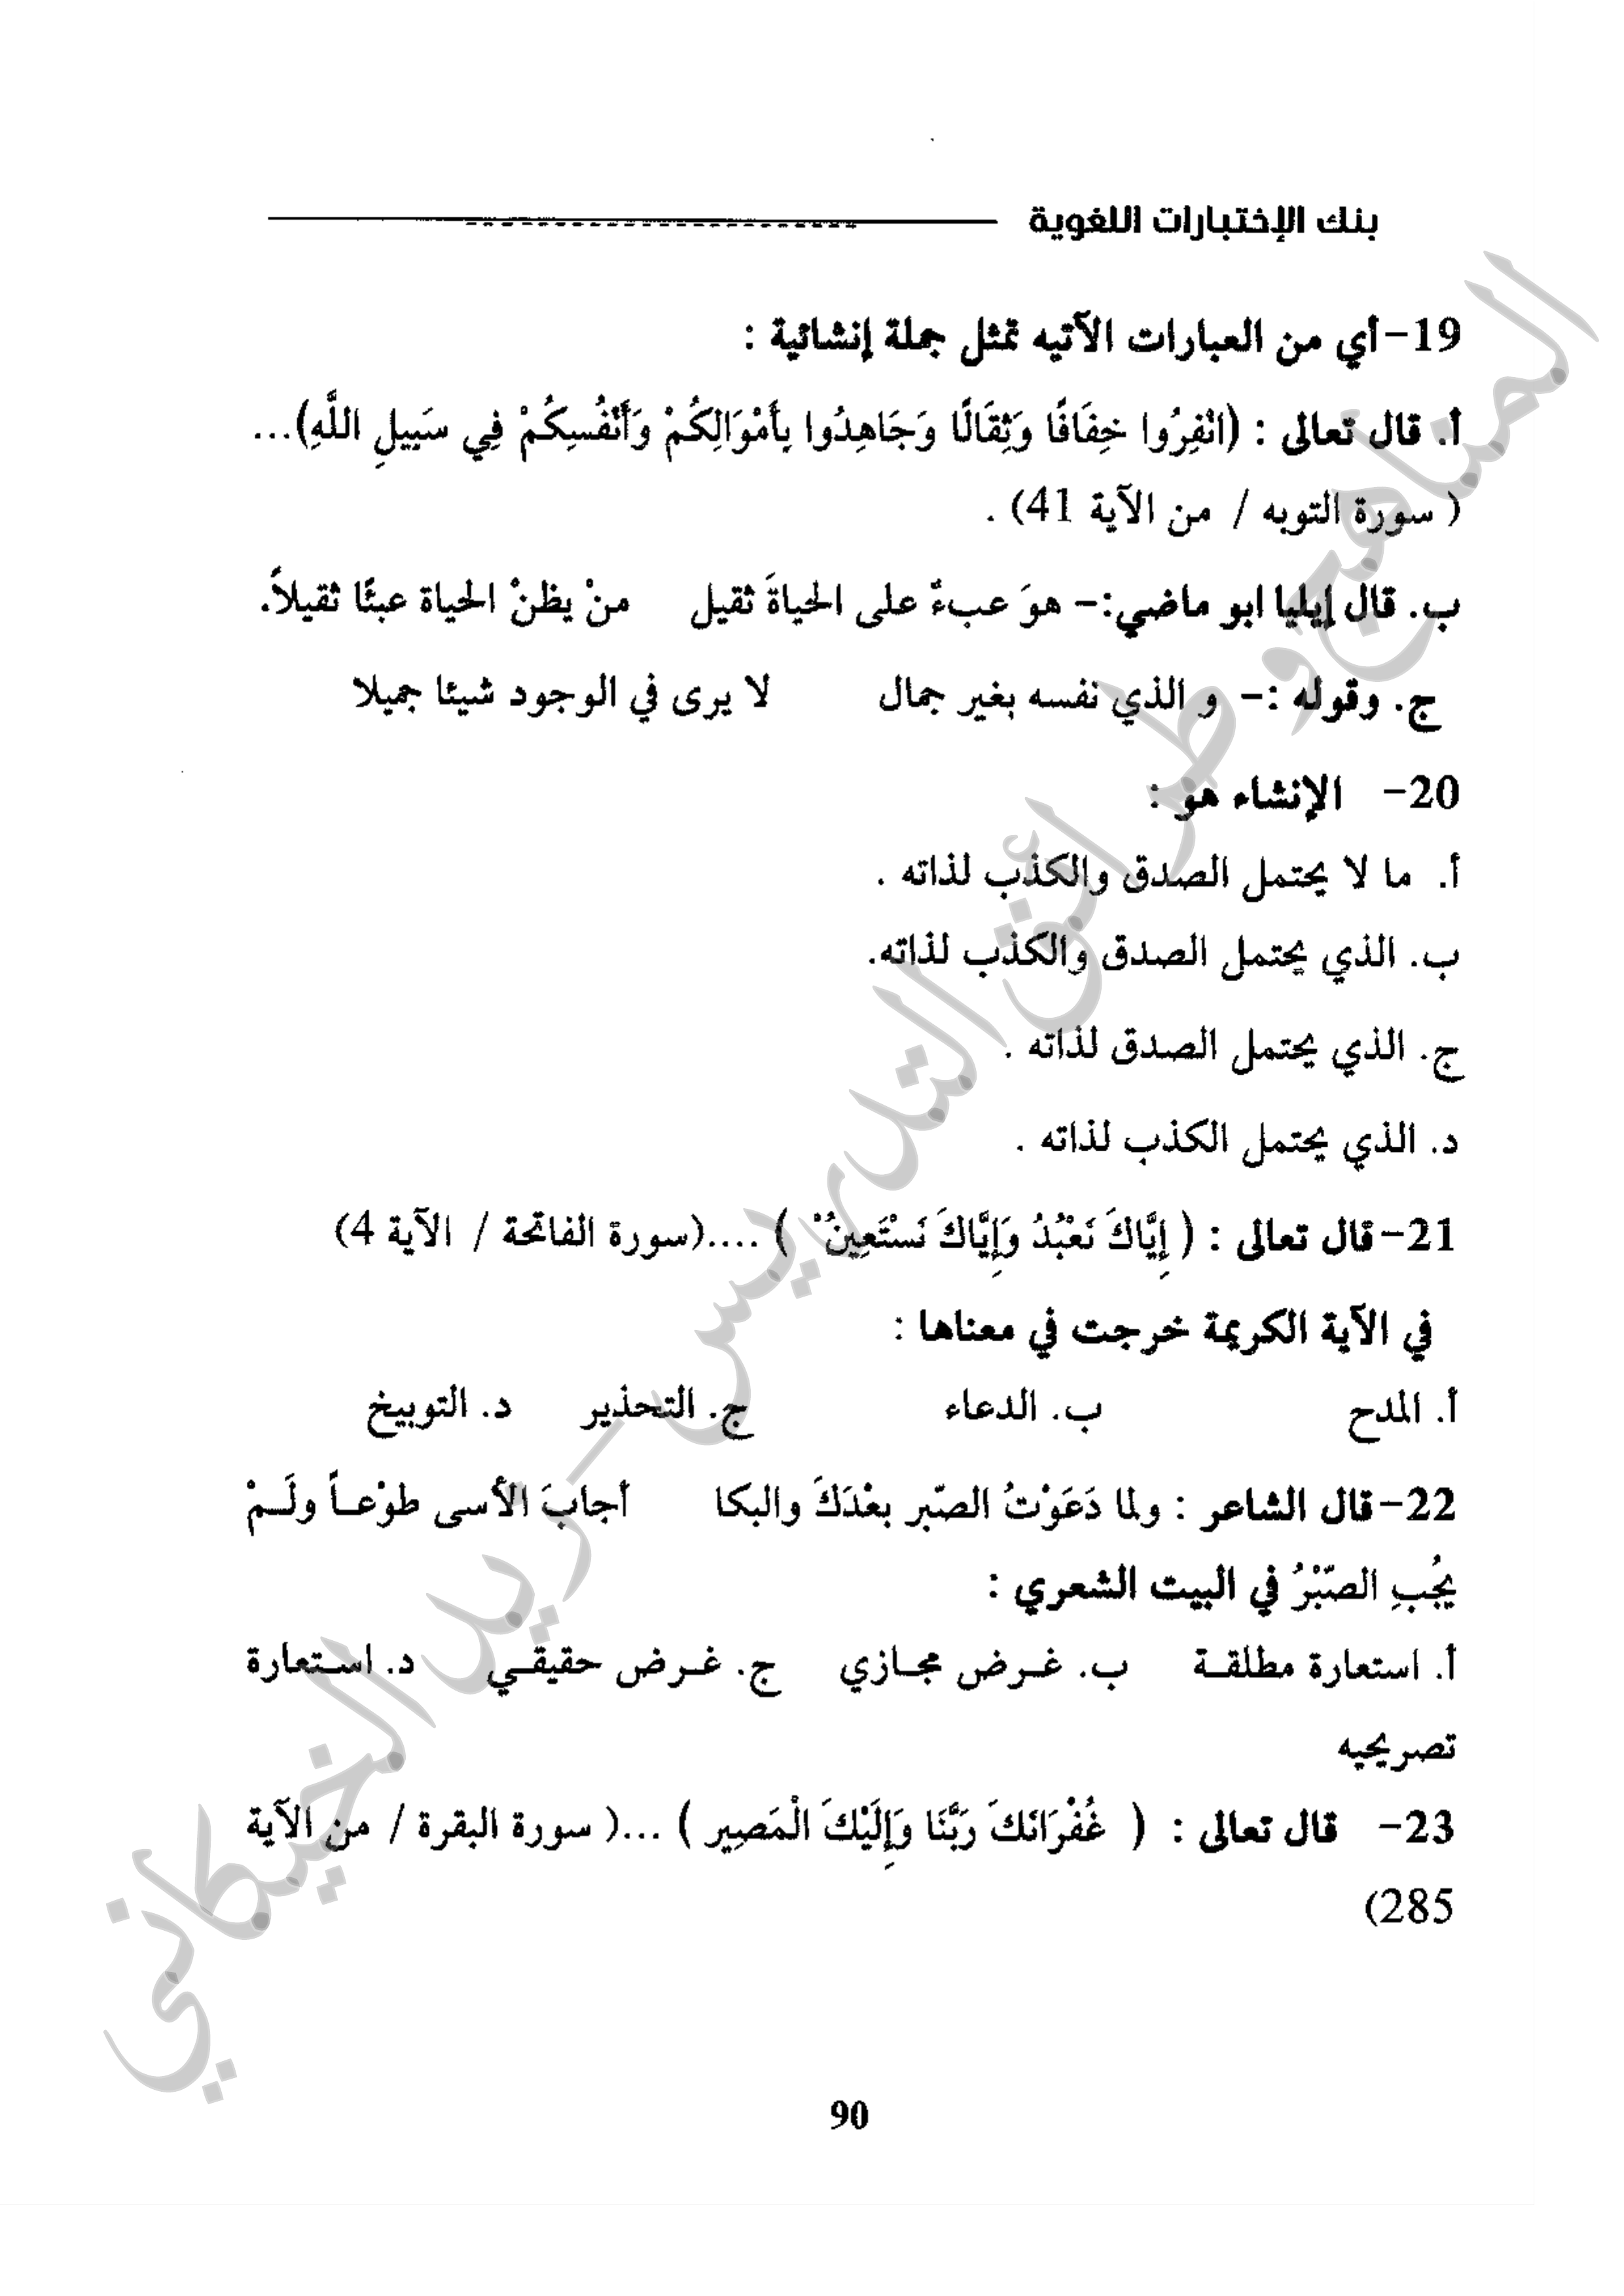 بنك الإختبارات اللغوية
19-أي من العبارات الآتيه تمثل جملة إنشائية :
أ. قال تعالى : (انْفِرُوا خِفَافًا وَثِقَالًا وَجَاهِدُوا بِأَمْوَالِكُمْ وَأَنْفُسِكُمْ فِي سَبِيلِ اللَّهِ)...
( سورة التوبه / من الآية 41) .
ب. قال إيليا ابو ماضي:- هوَ عبءٌ على الحياةَ ثقيل منْ يظنْ الحياة عبئًا ثقيلاً.
ج. وقوله :- و الذي نفسه بغير جمال لا يرى في الوجود شيئا جميلا
20- الإنشاء هو :
أ. ما لا يحتمل الصدق والكذب لذاته .
ب. الذي يحتمل الصدق والكذب لذاته.
ج. الذي يحتمل الصدق لذاته .
د. الذي يحتمل الكذب لذاته .
21-قال تعالى : ( إِيَّاكَ نَعْبُدُ وَإِيَّاكَ نَسْتَعِينُ ْ ) ....(سورة الفاتحة / الآية 4)
في الآية الكريمة خرجت في معناها :
أ. المدح ب. الدعاء ج. التحذير د. التوبيخ
22-قال الشاعر : ولما دَعَوْتُ الصّبر بعْدَكَ والبكا أجابَ الأسى طوْعاً ولَمْ
يُجُبِ الصّبْرُ في البيت الشعري :
أ. استعارة مطلقة ب. غرض مجازي ج. غرض حقيقي د. استعارة
تصريحيه
23- قال تعالى : ( غُفْرَانَكَ رَبَّنَا وَإِلَيْكَ الْمَصِير ) ...( سورة البقرة / من الآية
285)
90
المناهج وطرائق التدريس - ريد الخيكاني